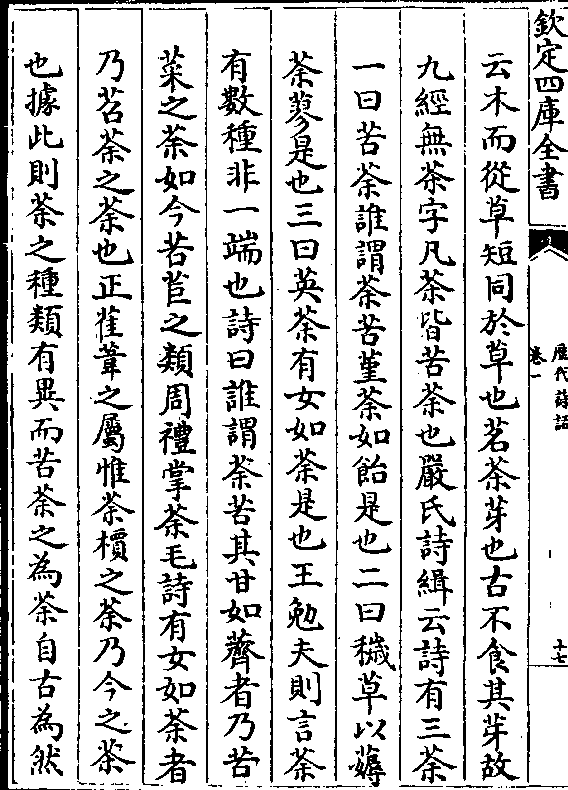 欽定四庫全書
歷代詩話
卷一
十七
云木而從草短同於草也茗茶芽也古不食其芽故
九經無茶字凡茶皆苦荼也嚴氏詩緝云詩有三荼
一曰苦荼誰謂荼苦堇荼如飴是也二曰穢草以薅
荼蓼是也三曰英荼有女如荼是也王勉夫則言荼
有數種非一端也詩曰誰謂荼苦其甘如薺者乃苦
菜之荼如今苦苣之類周禮掌荼毛詩有女如荼者
乃苕荼之荼也正萑葦之屬惟荼檟之荼乃今之茶
也據此則荼之種類有異而苦荼之為荼自古為然